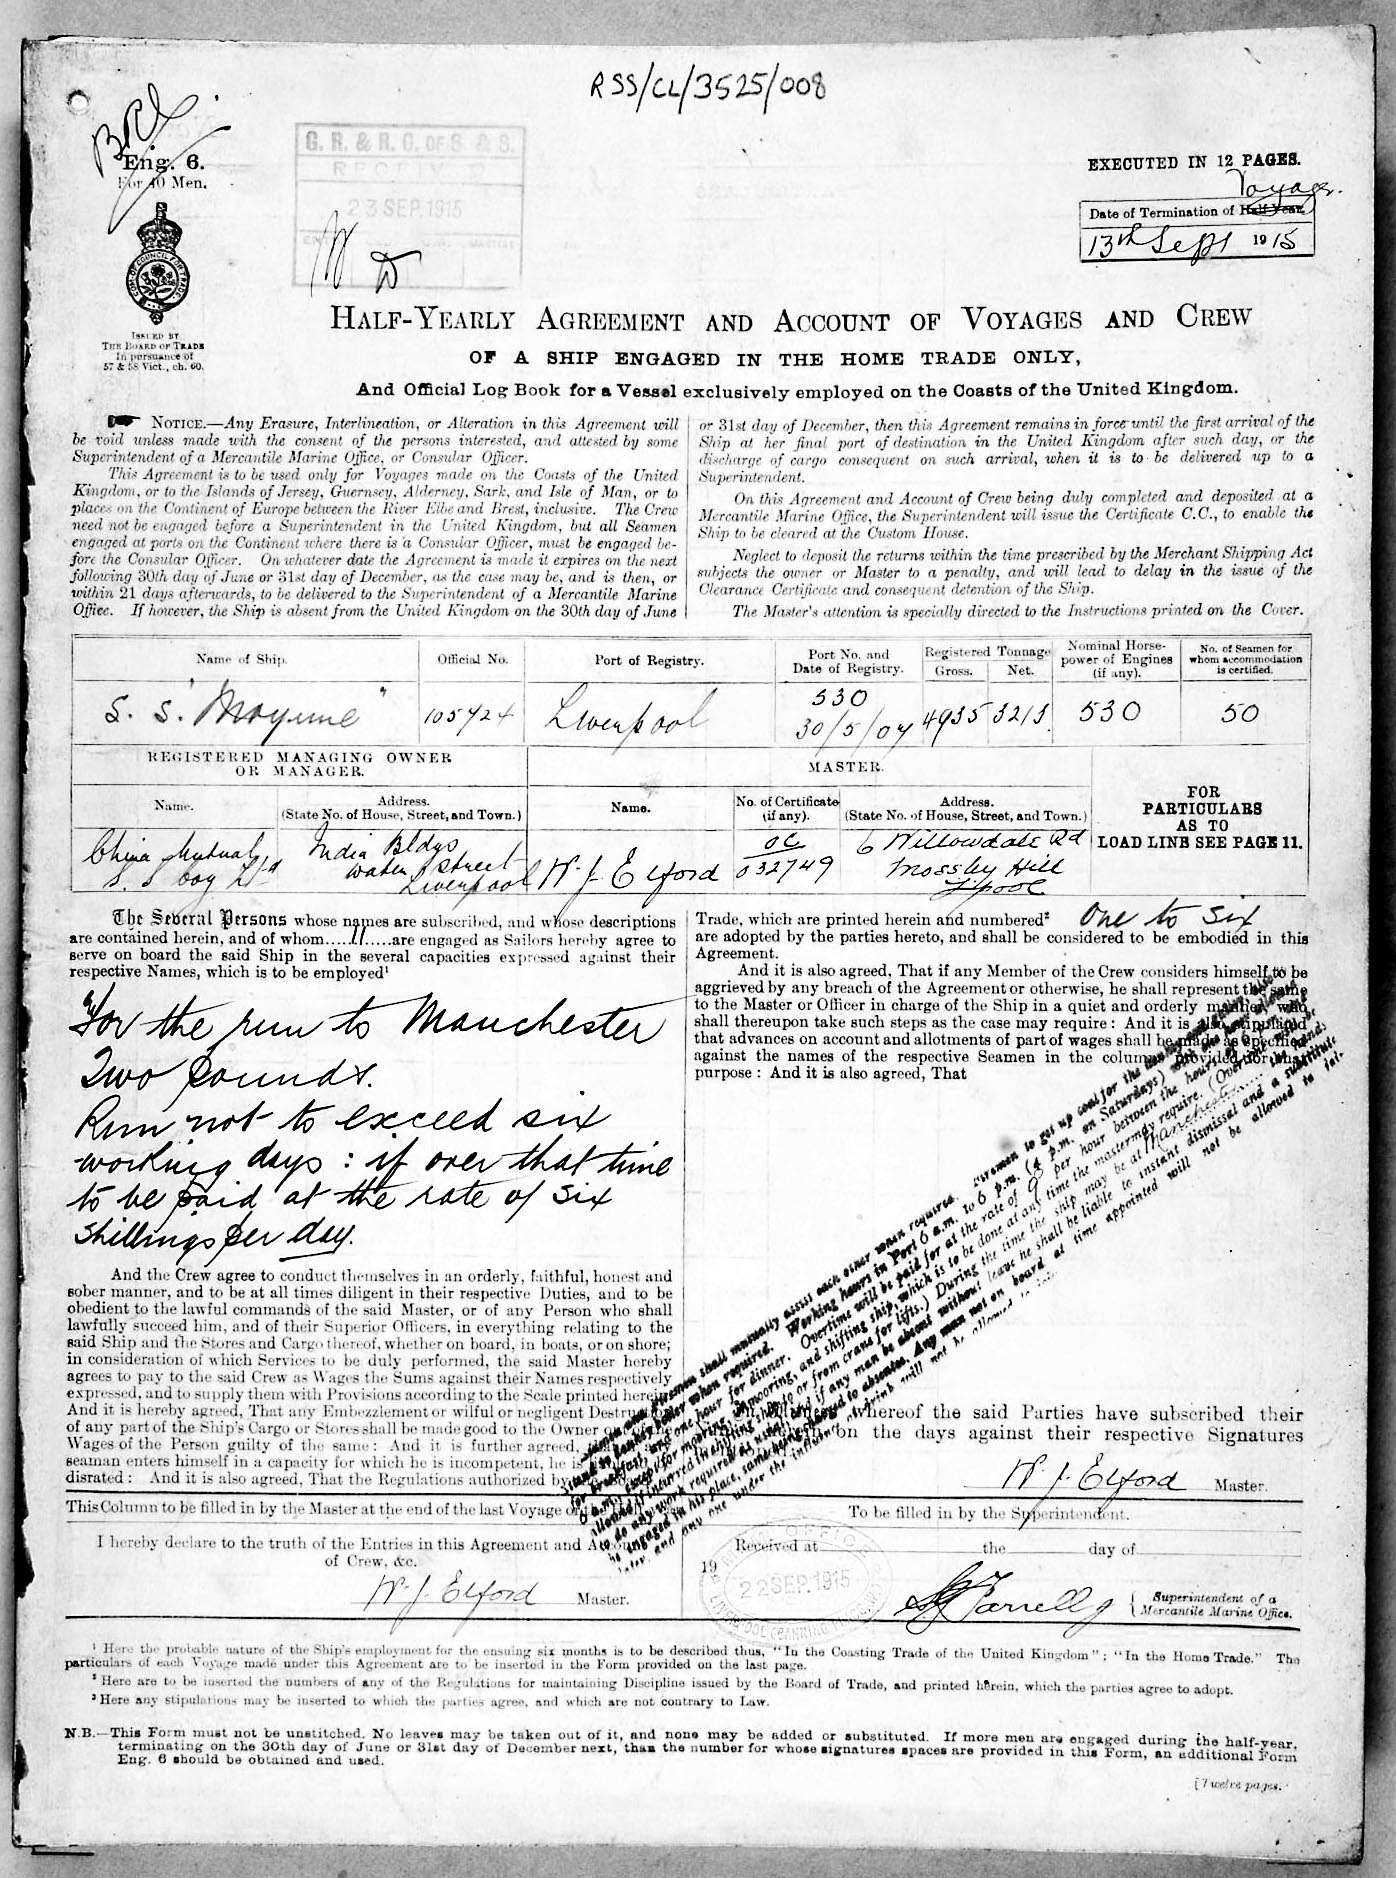 RSS/CL/3525/008
Eng. 6.
For 40 Men.
G. R. & R. O. OF S. & S.
RECEIVED
23 SEP. 1915
EXECUTED IN 12 PAGES.
Voyage.
Date of Termination of Half-Year.
13th Sept 1915
ISSUED BY
THE BOARD OF TRADE
In pursuance of
57 & 58 Vict., ch. 60.
HALF-YEARLY AGREEMENT AND ACCOUNT OF VOYAGES AND CREW
OF A SHIP ENGAGED IN THE HOME TRADE ONLY,
And Official Log Book for a Vessel exclusively employed on the Coasts of the United Kingdom.
NOTICE.—Any Erasure, Interlineation, or Alteration in this Agreement will
be void unless made with the consent of the persons interested, and attested by some
Superintendent of a Mercantile Marine Office, or Consular Officer.
This Agreement is to be used only for Voyages made on the Coasts of the United
Kingdom, or to the Islands of Jersey, Guernsey, Alderney, Sark, and Isle of Man, or to
places on the Continent of Europe between the River Elbe and Brest, inclusive. The Crew
need not be engaged before a Superintendent in the United Kingdom, but all Seamen
engaged at ports on the Continent where there is a Consular Officer, must be engaged be-
fore the Consular Officer. On whatever date the Agreement is made it expires on the next
following 30th day of June or 31st day of December, as the case may be, and is then, or
within 21 days afterwards, to be delivered to the Superintendent of a Mercantile Marine
Office. If however, the Ship is absent from the United Kingdom on the 30th day of June
or 31st day of December, then this Agreement remains in force until the first arrival of the
Ship at her final port of destination in the United Kingdom after such day, or the
discharge of cargo consequent on such arrival, when it is to be delivered up to a
Superintendent.
On this Agreement and Account of Crew being duly completed and deposited at a
Mercantile Marine Office, the Superintendent will issue the Certificate C.C., to enable the
Ship to be cleared at the Custom House.
Neglect to deposit the returns within the time prescribed by the Merchant Shipping Act
subjects the owner or Master to a penalty, and will lead to delay in the issue of the
Clearance Certificate and consequent detention of the Ship.
The Master's attention is specially directed to the Instructions printed on the Cover.
Name of Ship. Official No. Port of Registry. Port No. and Date of Registry. Registered Tonnage Gross. Net. Nominal Horse-power of Engines (if any). No. of Seamen for whom accommodation is certified.
S. S. "Moyune" 105424 Liverpool 530 30/5/07 4935 3213 530 50
REGISTERED MANAGING OWNER
OR MANAGER.
MASTER.
Name. Address. (State No. of House, Street, and Town.) Name. No. of Certificate (if any). Address. (State No. of House, Street, and Town.)
China Mutual S. S. Coy Ltd
India Bldgs
Water Street
Liverpool
W. J. Elford
OC
032749
6 Willowdale Rd
Mossley Hill
L'pool
FOR
PARTICULARS
AS TO
LOAD LINE SEE PAGE 11.
The Several Persons whose names are subscribed, and whose descriptions
are contained herein, and of whom.....11.....are engaged as Sailors hereby agree to
serve on board the said Ship in the several capacities expressed against their
respective Names, which is to be employed¹
For the run to Manchester
Two pounds.
Run not to exceed six
working days : if over that time
to be paid at the rate of six
shillings per day.
And the Crew agree to conduct themselves in an orderly, faithful, honest and
sober manner, and to be at all times diligent in their respective Duties, and to be
obedient to the lawful commands of the said Master, or of any Person who shall
lawfully succeed him, and of their Superior Officers, in everything relating to the
said Ship and the Stores and Cargo thereof, whether on board, in boats, or on shore;
in consideration of which Services to be duly performed, the said Master hereby
agrees to pay to the said Crew as Wages the Sums against their Names respectively
expressed, and to supply them with Provisions according to the Scale printed herein
And it is hereby agreed, That any Embezzlement or wilful or negligent Destruc
of any part of the Ship's Cargo or Stores shall be made good to the Owner
Wages of the Person guilty of the same: And it is further agreed,
seaman enters himself in a capacity for which he is incompetent, he is
disrated: And it is also agreed, That the Regulations authorized by
Trade, which are printed herein and numbered² One to Six
are adopted by the parties hereto, and shall be considered to be embodied in this
Agreement.
And it is also agreed, That if any Member of the Crew considers himself to be
aggrieved by any breach of the Agreement or otherwise, he shall represent the same
to the Master or Officer in charge of the Ship in a quiet and orderly manner, who
shall thereupon take such steps as the case may require: And it is also stipulated
that advances on account and allotments of part of wages shall be made as specified
against the names of the respective Seamen in the columns provided for that
purpose: And it is also agreed, That
shall mutually assist each other when required. Firemen to get up coal for the
when required. Working hours in Port 6 a.m. to 6 p.m. (4 p.m. on Saturdays)
one hour for dinner. Overtime will be paid for at the rate of 9 per hour between the hours of 6 p.m.
except for mooring, unmooring, and shifting ship, which is to be done at any time the master may require. (Overtime
allowed if incurred in shifting ship to or from crane for lifts.) During the time the ship may be at Manchester the hands
to do any work required as usual, and if any man be absent without leave he shall be liable to instant dismissal and a substitute
be engaged in his place, same being charged to absentee. Any man not on board at time appointed will not be allowed to
and any one under the influence of drink will not be allowed
whereof the said Parties have subscribed their
on the days against their respective Signatures
W. J. Elford Master.
This Column to be filled in by the Master at the end of the last Voyage
I hereby declare to the truth of the Entries in this Agreement and Account
of Crew, &c.
W. J. Elford Master.
To be filled in by the Superintendent.
Received at the day of
19
22 SEP. 1915
Superintendent of a
Mercantile Marine Office.
¹ Here the probable nature of the Ship's employment for the ensuing six months is to be described thus, "In the Coasting Trade of the United Kingdom"; "In the Home Trade." The
particulars of each Voyage made under this Agreement are to be inserted in the Form provided on the last page.
² Here are to be inserted the numbers of any of the Regulations for maintaining Discipline issued by the Board of Trade, and printed herein, which the parties agree to adopt.
³ Here any stipulations may be inserted to which the parties agree, and which are not contrary to Law.
N.B.—This Form must not be unstitched. No leaves may be taken out of it, and none may be added or substituted. If more men are engaged during the half-year,
terminating on the 30th day of June or 31st day of December next, than the number for whose signatures spaces are provided in this Form, an additional Form
Eng. 6 should be obtained and used.
[Twelve pages.